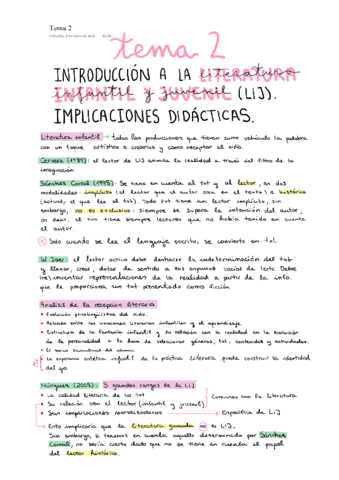 Tema 2
tema 2
INTRODUCCIÓN A LA literatura
infantil y juvenil (LIJ).
IMPLICACIONES DIDÁCTICAS.
Literatura infantil → todas las producciones que tienen como vehículo la palabra
con un toque artístico o creativo y como receptor al niño.
Cervera (1989): el lector de LIJ asimila la realidad a través del filtro de la
imaginación.
Sánchez Corral (1995): Se tiene en cuenta al txt y al lector, en dos
modalidades: implícito (el lector que el autor crea en el texto) e histórico
(actual, el que lee el txt). Todo txt tiene un lector implícito, sin
embargo, no es exclusivo: siempre se supera la intención del autor,
es decir, el txt tiene siempre lecturas que no había tenido en cuenta
el autor.
Solo cuando se lee el lenguaje escrito, se convierte en txt.
W. Iser: el lector activo debe deshacer la indeterminación del txt
y llenar, crear, dotar de sentido a los espacios vacíos de texto. Debe
(re)inventar representaciones de la realidad a partir de la info.
que le proporciona un txt presentado como ficción
Análisis de la recepción literaria
• Evolución psicolingüística del niño.
• Relación entre las creaciones literarias infantiles y el aprendizaje.
• Estructura de la fantasía infantil y su relación con la realidad en la evolución
de la personalidad a la hora de seleccionar géneros, txt, contenidos y actividades.
• La experiencia estética infantil de la práctica literaria puede construir la identidad
del yo.
Mínguez (2009): 3 grandes rasgos de la LIJ
• La calidad literaria de los txt
• Su relación con el lector (infantil y juvenil)
Comunes con la literatura
• Sus implicaciones moralizadoras → Específica de LIJ
Esto implicaría que la literatura ganada no es LIJ.
Sin embargo, si tenemos en cuenta aquello determinado por Sánchez
Corral, no sería cierto dado que no se tiene en cuenta el papel
del lector histórico.